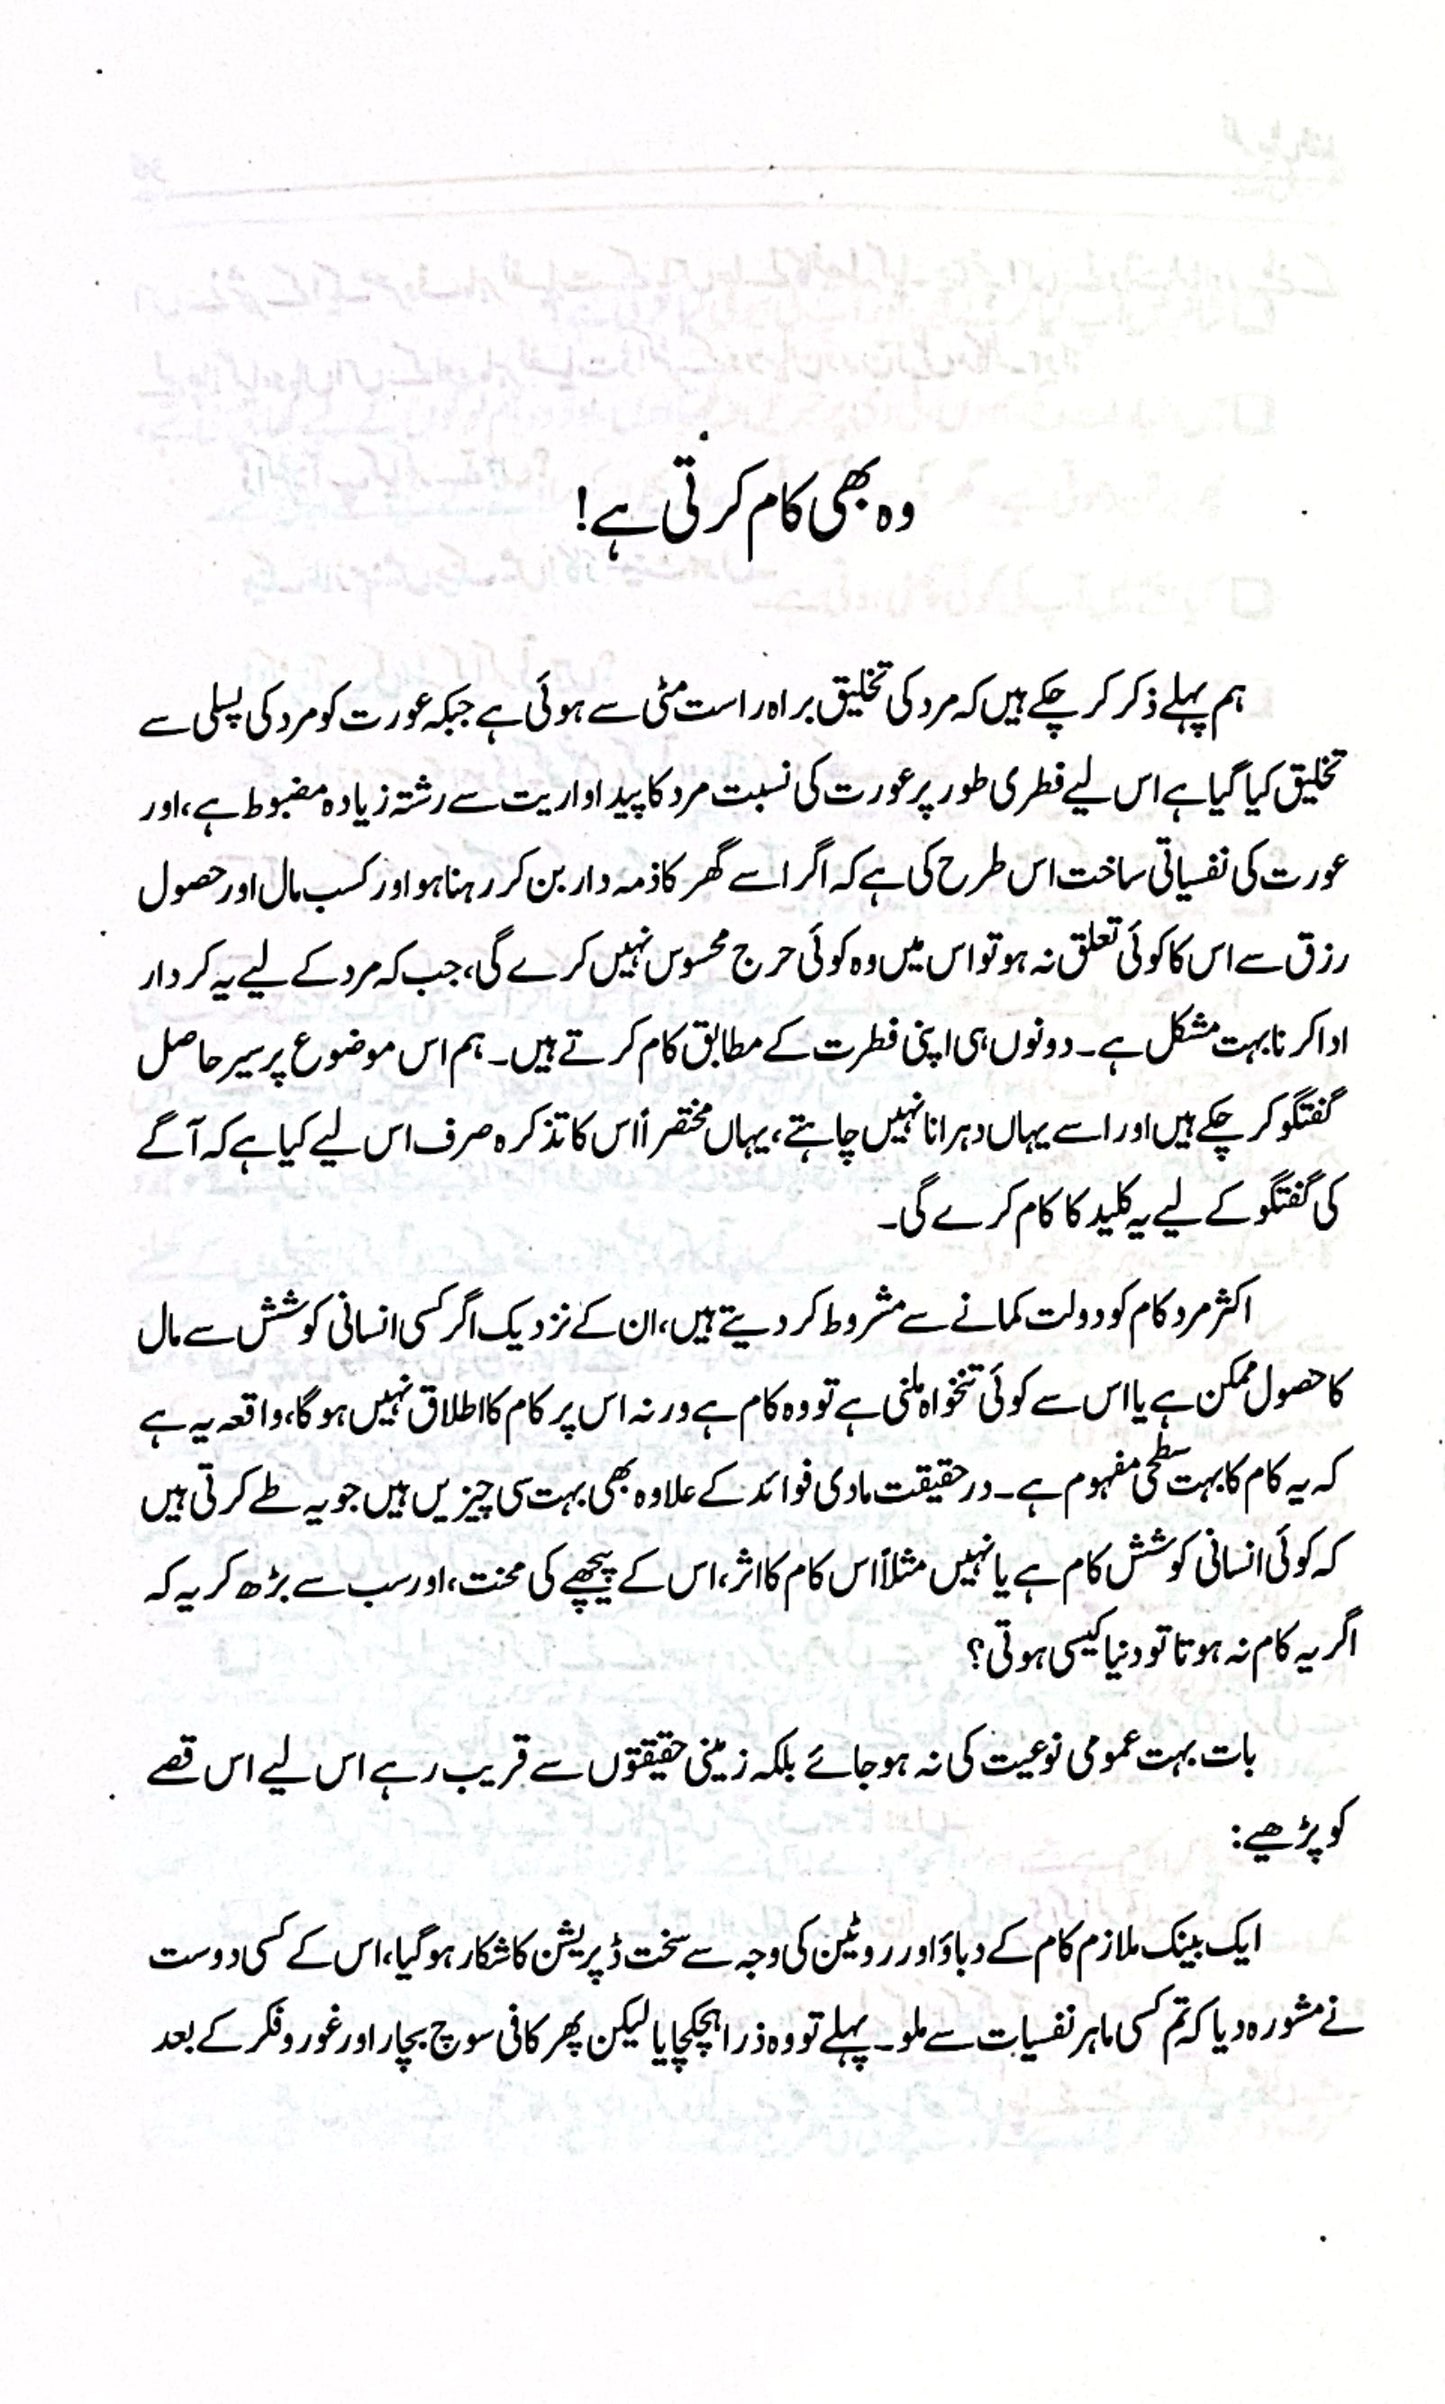 وہ بھی کام کرتی ہے!
ہم پہلے ذکر کر چکے ہیں کہ مرد کی تخلیق براہ راست مٹی سے ہوئی ہے جبکہ عورت کو مرد کی پسلی سے
تخلیق کیا گیا ہے اس لیے فطری طور پر عورت کی نسبت مرد کا پیداواریت سے رشتہ زیادہ مضبوط ہے، اور
عورت کی نفسیاتی ساخت اس طرح کی ہے کہ اگر اسے گھر کا ذمہ دار بن کر رہنا ہو اور کسب مال اور حصول
رزق سے اس کا کوئی تعلق نہ ہو تو اس میں وہ کوئی حرج محسوس نہیں کرے گی، جب کہ مرد کے لیے یہ کردار
ادا کرنا بہت مشکل ہے۔ دونوں ہی اپنی فطرت کے مطابق کام کرتے ہیں۔ ہم اس موضوع پر سیر حاصل
گفتگو کر چکے ہیں اور اسے یہاں دہرانا نہیں چاہتے، یہاں مختصراً اس کا تذکرہ صرف اس لیے کیا ہے کہ آگے
کی گفتگو کے لیے یہ کلید کا کام کرے گی۔
اکثر مرد کام کو دولت کمانے سے مشروط کر دیتے ہیں، ان کے نزدیک اگر کسی انسانی کوشش سے مال
کا حصول ممکن ہے یا اس سے کوئی تنخواہ ملنی ہے تو وہ کام ہے ورنہ اس پر کام کا اطلاق نہیں ہوگا، واقعہ یہ ہے
کہ یہ کام کا بہت سطحی مفہوم ہے۔ درحقیقت مادی فوائد کے علاوہ بھی بہت سی چیزیں ہیں جو یہ طے کرتی ہیں
کہ کوئی انسانی کوشش کام ہے یا نہیں مثلاً اس کام کا اثر، اس کے پیچھے کی محنت، اور سب سے بڑھ کر یہ کہ
اگر یہ کام نہ ہوتا تو دنیا کیسی ہوتی؟
بات بہت عمومی نوعیت کی نہ ہو جائے بلکہ زمینی حقیقتوں سے قریب رہے اس لیے اس قصے
کو پڑھیے:
ایک بینک ملازم کام کے دباؤ اور روٹین کی وجہ سے سخت ڈپریشن کا شکار ہو گیا، اس کے کسی دوست
نے مشورہ دیا کہ تم کسی ماہر نفسیات سے ملو۔ پہلے تو وہ ذرا ہچکچایا لیکن پھر کافی سوچ بچار اور غور و فکر کے بعد